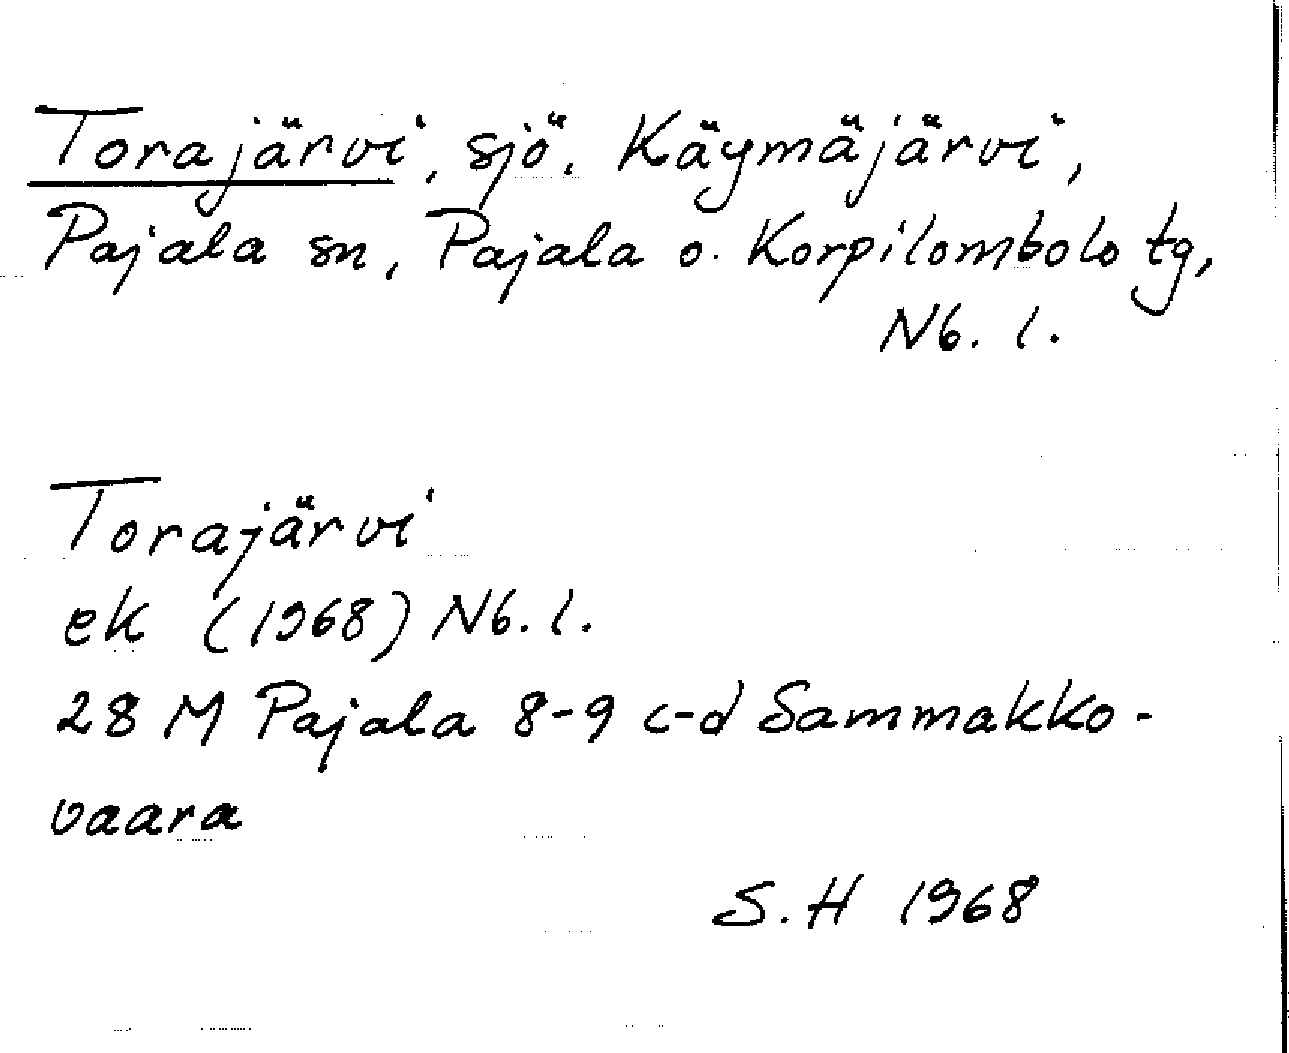 Torajärvi, sjö. Käymäjärvi,
Pajala sn, Pajala o. Korpilombolo tg,
Nb. l.
Torajärvi
ek (1968) Nb. l.
28 M Pajala 8-9 c-d Sammakko-
vaara
S. H 1968